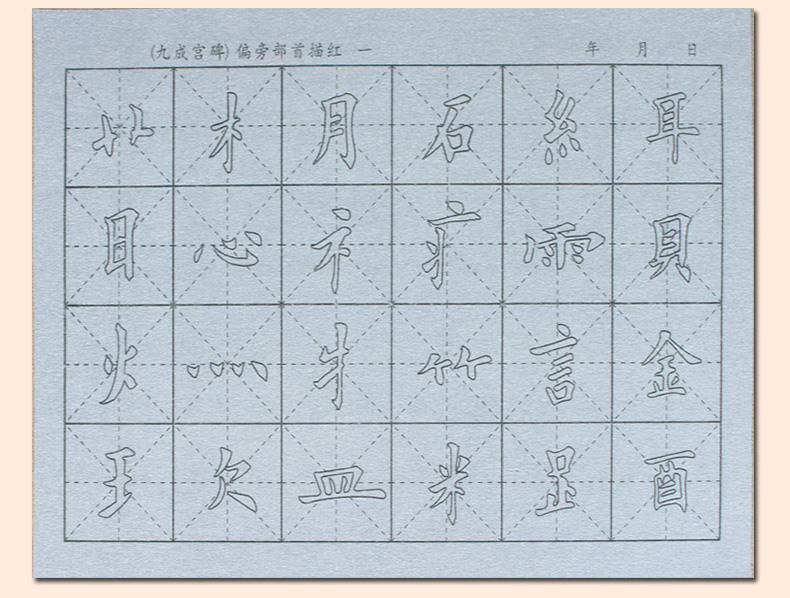 (九成宫碑) 偏旁部首描红 一 年 月 日
艹 木 月 石 糹 耳
目 心 礻 疒 雨 貝
火 灬 牜 竹 言 金
王 欠 皿 米 𧾷 酉